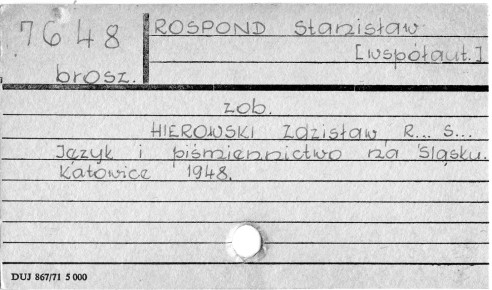 7648
brosz.
ROSPOND Stanisław
[współaut.]
zob.
HIEROWSKI Zdzisław, R... S...
Język i piśmiennictwo na Śląsku.
Katowice 1948.
DUJ 867/71 5 000